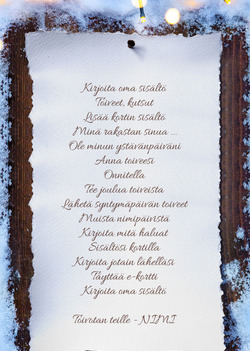 Kirjoita oma sisältö
Toiveet, kutsut
Lisää kortin sisältö
Minä rakastan sinua ...
Ole minun ystävänpäiväni
Anna toiveesi
Onnitella
Tee joulua toiveista
Lähetä syntymäpäivän toiveet
Muista nimipäivistä
Kirjoita mitä haluat
Sisältösi kortilla
Kirjoita jotain lähelläsi
Täyttää e-kortti
Kirjoita oma sisältö
Toivotan teille - NIMI